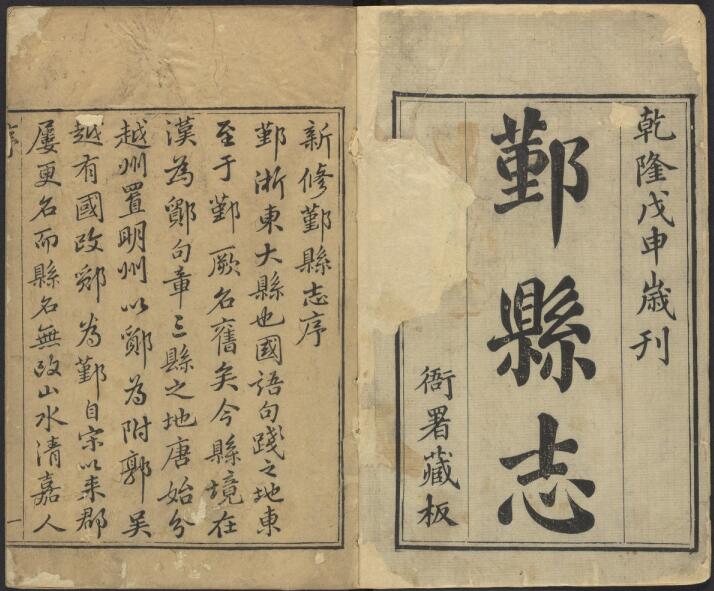 乾隆戊申歳刊
鄞縣志
衙署藏板
新修鄞縣志序
鄞浙東大縣也國語句踐之地東
至于鄞厥名舊矣今縣境在
漢為鄮句章三縣之地唐始分
越州置明州以鄮為附郭吳
越有國改鄮為鄞自宋以来郡
屢更名而縣名無改山水清嘉人
序
一